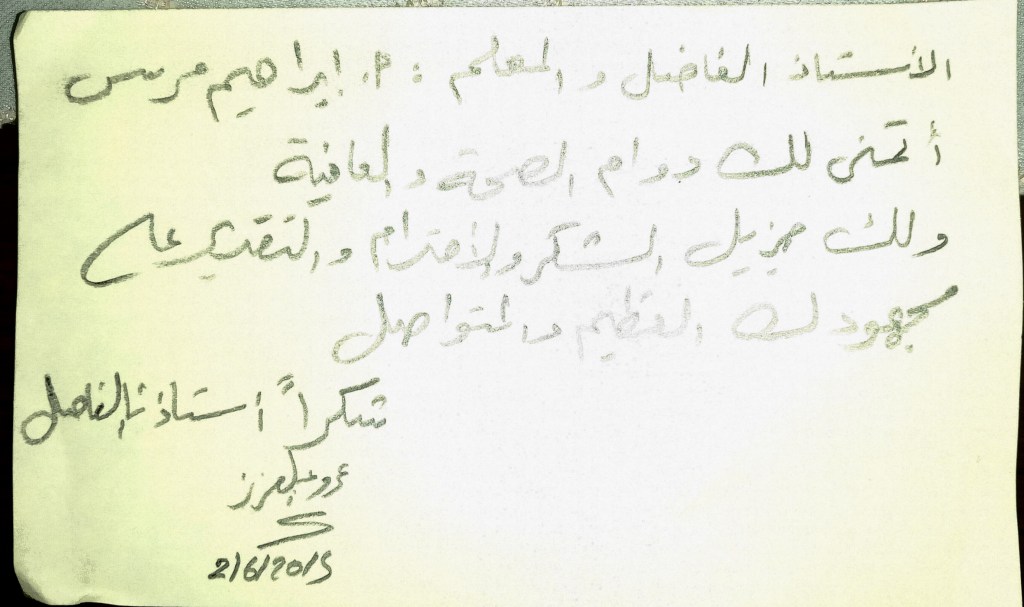 الأستاذ الفاضل و المعلم : أ. إبراهيم مرسى
أتمنى لك دوام الصحة و العافية
ولك جزيل الشكر والإحترام و التقدير على
مجهودك العظيم و المتواصل
شكراً أستاذنا الفاضل
عمرو عبدالعزيز
2/6/2015